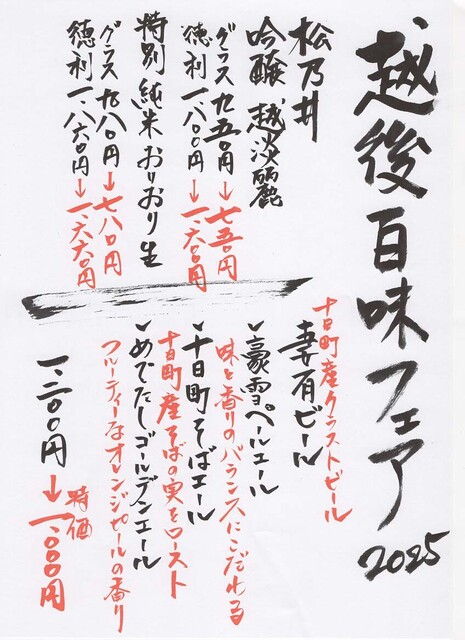 越後百味フェア
2025
松乃井
吟醸 越淡麗
グラス九五〇円→七五〇円
徳利一、八〇〇円→一、六〇〇円
特別純米おりおり生
グラス九八〇円→七八〇円
徳利一、八六〇円→一、六六〇円
十日町産クラフトビール
妻有ビール
豪雪ペールエール
味と香りのバランスにこだわる
十日町そばエール
十日町産そばの実をロースト
めでたしゴールデンエール
フルーティーなオレンジピールの香り
一、二〇〇円→特価一、〇〇〇円